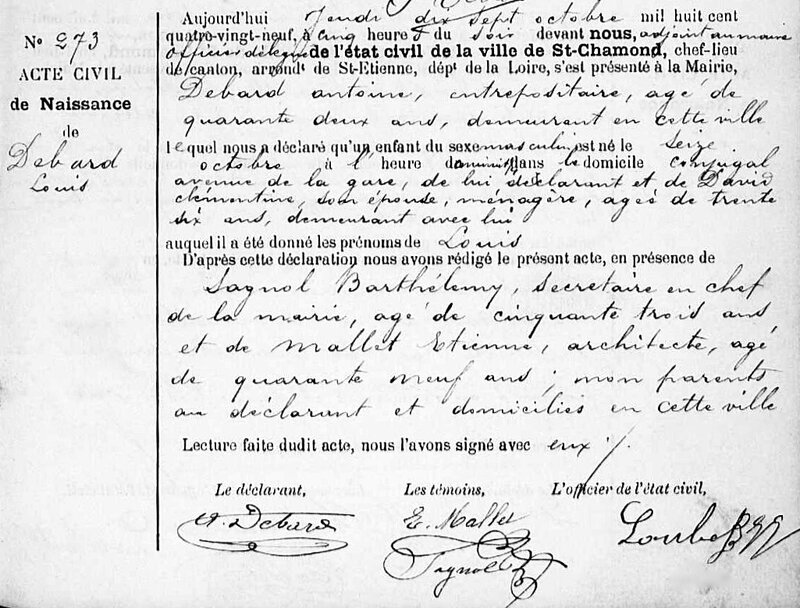 No 273
ACTE CIVIL
de Naissance
de
Debard
Louis
Aujourd'hui Jeudi dix sept octobre mil huit cent
quatre-vingt-neuf, à cinq heures du soir devant nous, adjoint au maire
officier délégué de l'état civil de la ville de St-Chamond, chef-lieu
de canton, arrondt de St-Etienne, dépt de la Loire, s'est présenté à la Mairie,
Debard antoine, entrepositaire, agé de
quarante deux ans, demeurant en cette ville
lequel nous a déclaré qu'un enfant du sexe masculin est né le seize
octobre à l'heure de minuit dans le domicile conjugal
avenue de la gare, de lui déclarant et de David
clémentine, son épouse, ménagère, agée de trente
six ans, demeurant avec lui
auquel il a été donné les prénoms de Louis
D'après cette déclaration nous avons rédigé le présent acte, en présence de
Sagnol Barthélemy, secrétaire en chef
de la mairie, agé de cinquante trois ans
et de Mallet Etienne, architecte, agé
de quarante neuf ans ; non parents
au déclarant et domiciliés en cette ville
Lecture faite dudit acte, nous l'avons signé avec eux
Le déclarant, Les témoins, L'officier de l'état civil,
A. Debard E. Mallet
Sagnol